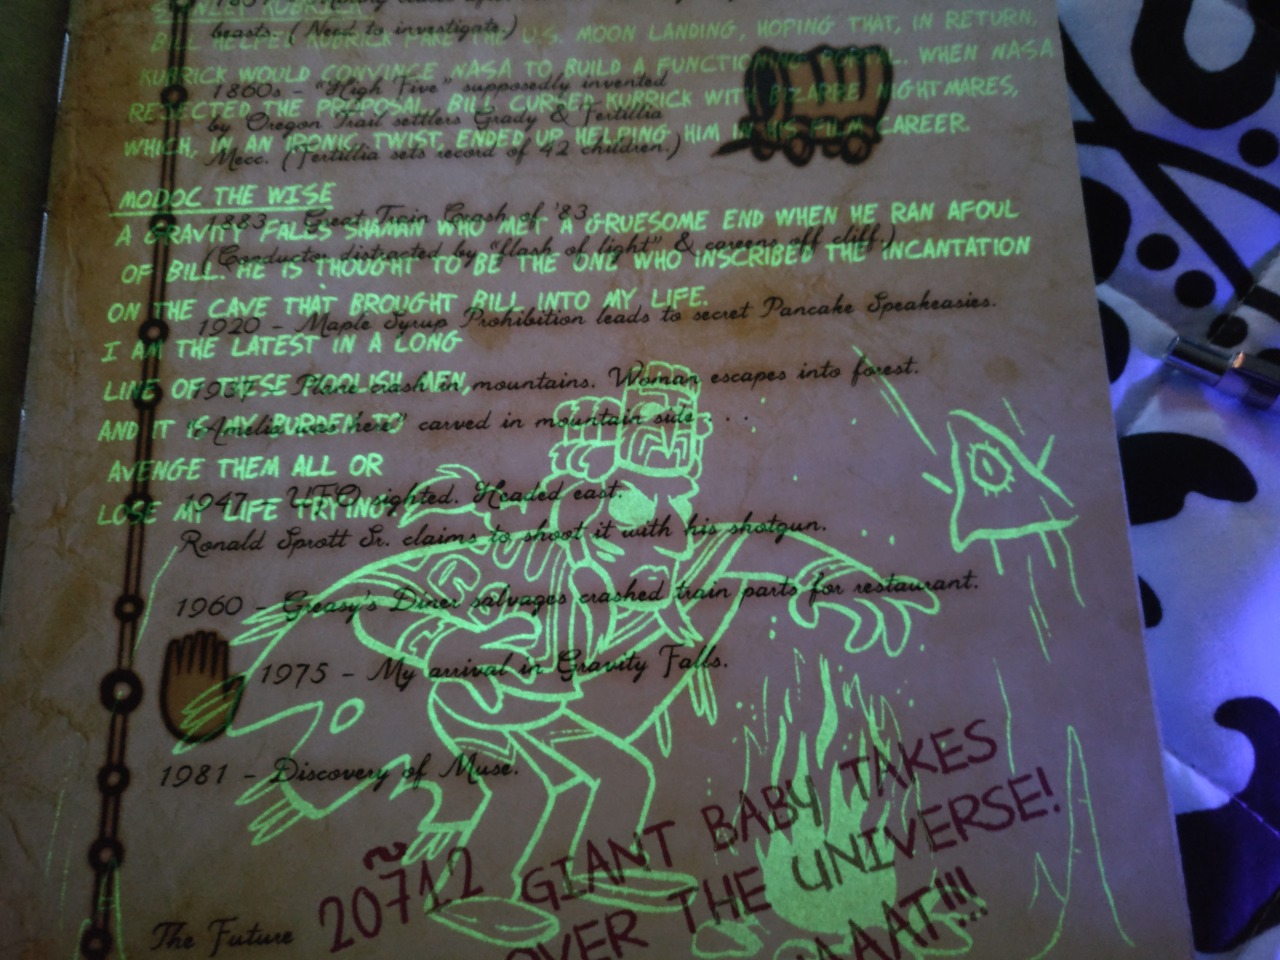 STANLEY KUBRICK
beasts. (Need to investigate.)
BILL HELPED KUBRICK FAKE THE U.S. MOON LANDING, HOPING THAT, IN RETURN,
KUBRICK WOULD CONVINCE NASA TO BUILD A FUNCTIONING PORTAL. WHEN NASA
1860s - "High Five" supposedly invented
REJECTED THE PROPOSAL, BILL CURSED KUBRICK WITH BIZARRE NIGHTMARES,
by Oregon Trail settlers Grady & Fertillia
WHICH, IN AN IRONIC TWIST, ENDED UP HELPING HIM IN HIS FILM CAREER.
Mecc. (Fertillia sets record of 42 children.)
MODOC THE WISE
1883 - Great Train Crash of '83
A GRAVITY FALLS SHAMAN WHO MET A GRUESOME END WHEN HE RAN AFOUL
(Conductor distracted by "flash of light" & careens off cliff.)
OF BILL. HE IS THOUGHT TO BE THE ONE WHO INSCRIBED THE INCANTATION
ON THE CAVE THAT BROUGHT BILL INTO MY LIFE.
1920 - Maple Syrup Prohibition leads to secret Pancake Speakeasies.
I AM THE LATEST IN A LONG
LINE OF THESE FOOLISH MEN,
1937 - Plane crash in mountains. Woman escapes into forest.
AND IT IS MY BURDEN TO
"Amelia was here" carved in mountain side . . .
AVENGE THEM ALL OR
1947 - UFO sighted. Headed east.
LOSE MY LIFE TRYING.
Ronald Sprott Sr. claims to shoot it with his shotgun.
1960 - Greasy's Diner salvages crashed train parts for restaurant.
1975 - My arrival in Gravity Falls.
1981 - Discovery of Muse.
20712 GIANT BABY TAKES
OVER THE UNIVERSE!
The Future